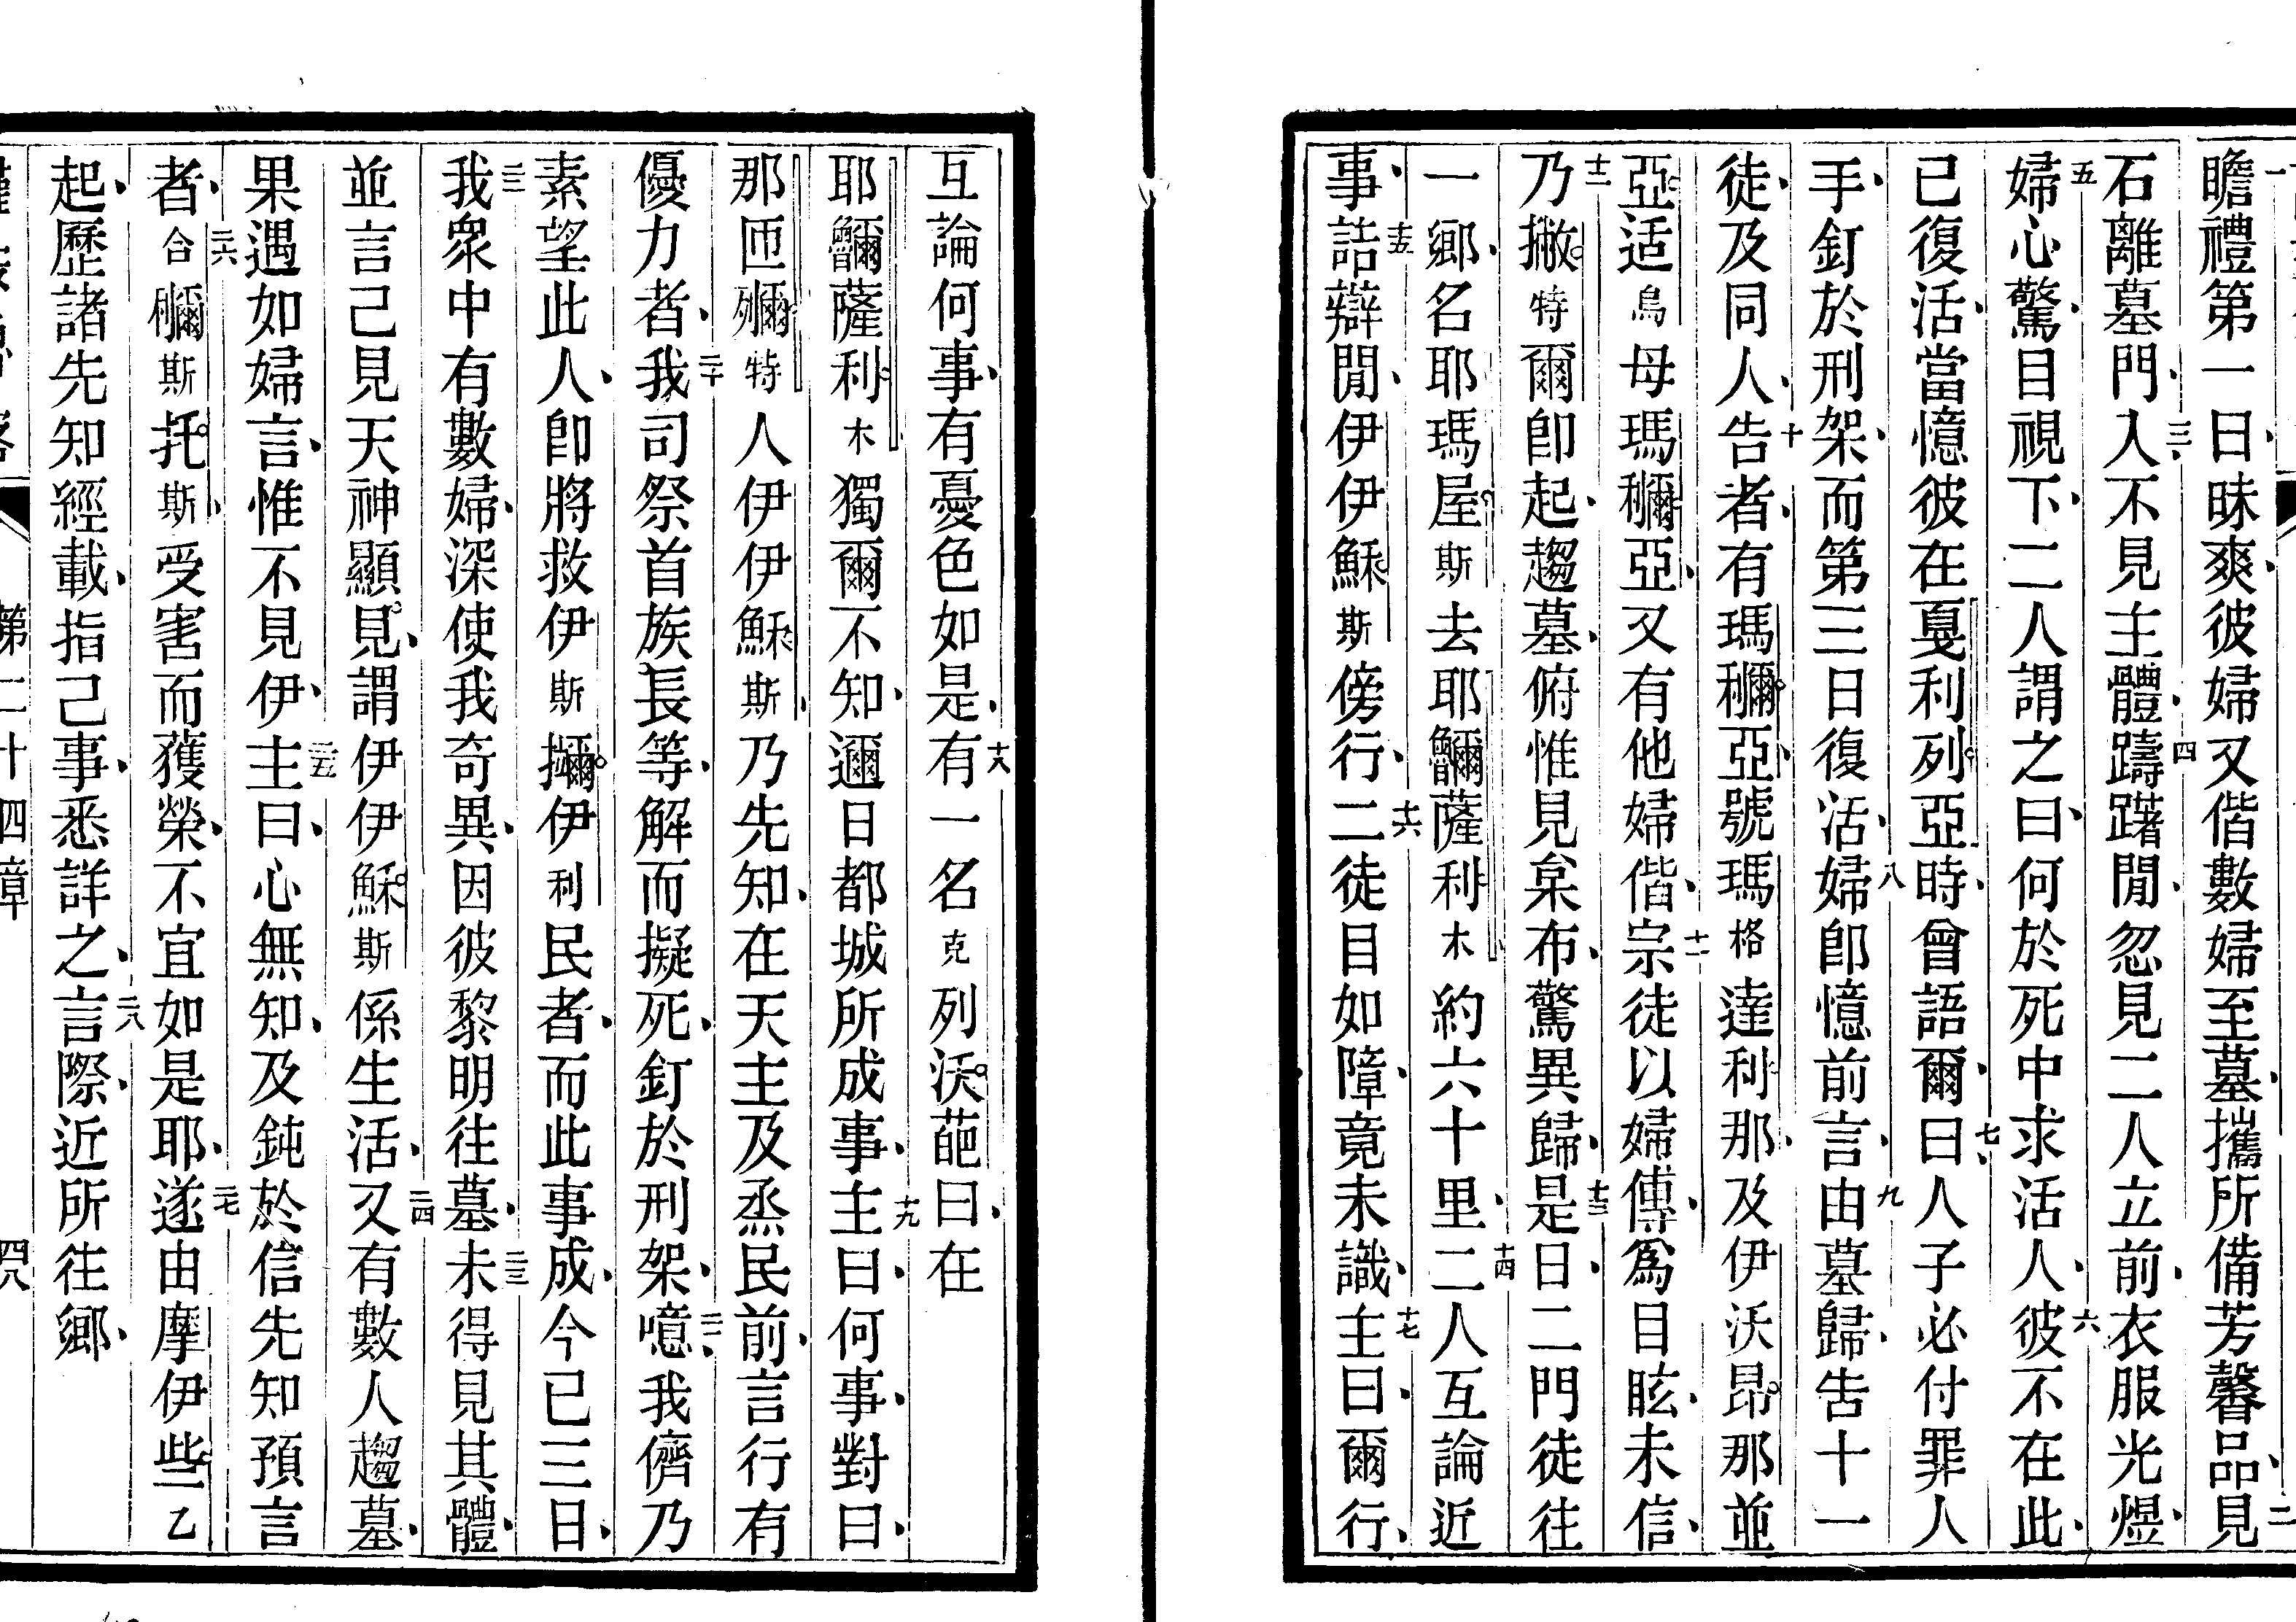 一瞻禮第一日、昧爽、彼婦又偕數婦至墓、攜所備芳馨品、二見
石離墓門、三入、不見主體、四躊躇閒、忽見二人立前、衣服光煜、
五婦心驚、目視下、二人謂之曰、何於死中求活人、六彼不在此、
已復活、當憶彼在戛利列亞時、曾語爾、七曰、人子必付罪人
手、釘於刑架、而第三日復活、八婦卽憶前言、九由墓歸、告十一
徒、及同人、十告者、有瑪穪亞、號瑪格達利那、及伊沃昂那、並
亞适烏母瑪穪亞、又有他婦偕、十一宗徒以婦傳、爲目眩、未信、
十二乃撇特爾卽起、趨墓、俯惟見枲布、驚異歸、十三是日、二門徒往
一鄉、名耶瑪屋斯、去耶鱜薩利木、約六十里、十四二人互論近
事、十五詰辯閒、伊伊穌斯傍行、十六二徒目如障、竟未識、十七主曰、爾行、
互論何事、有憂色如是、十八有一名克列沃葩曰、在
耶鱜薩利木、獨爾不知、邇日都城所成事、十九主曰、何事、對曰、
那匝殢特人伊伊穌斯、乃先知、在天主及烝民前、言行有
優力者、二十我司祭首族長等、解而擬死、釘於刑架、二一噫、我儕乃
素望此人、卽將救伊斯擟伊利民者、而此事成、今已三日、
二二我眾中有數婦、深使我奇異、因彼黎明往墓、二三未得見其體、
並言己見天神顯見、謂伊伊穌斯係生活、二四又有數人趨墓、
果遇如婦言、惟不見伊、二五主曰、心無知、及鈍於信先知預言
者、二六合穪斯托斯、受害而獲榮、不宜如是耶、二七遂由摩伊些乙
起、歷諸先知經載、指己事、悉詳之、二八言際、近所往鄉、
第二十四章 四八